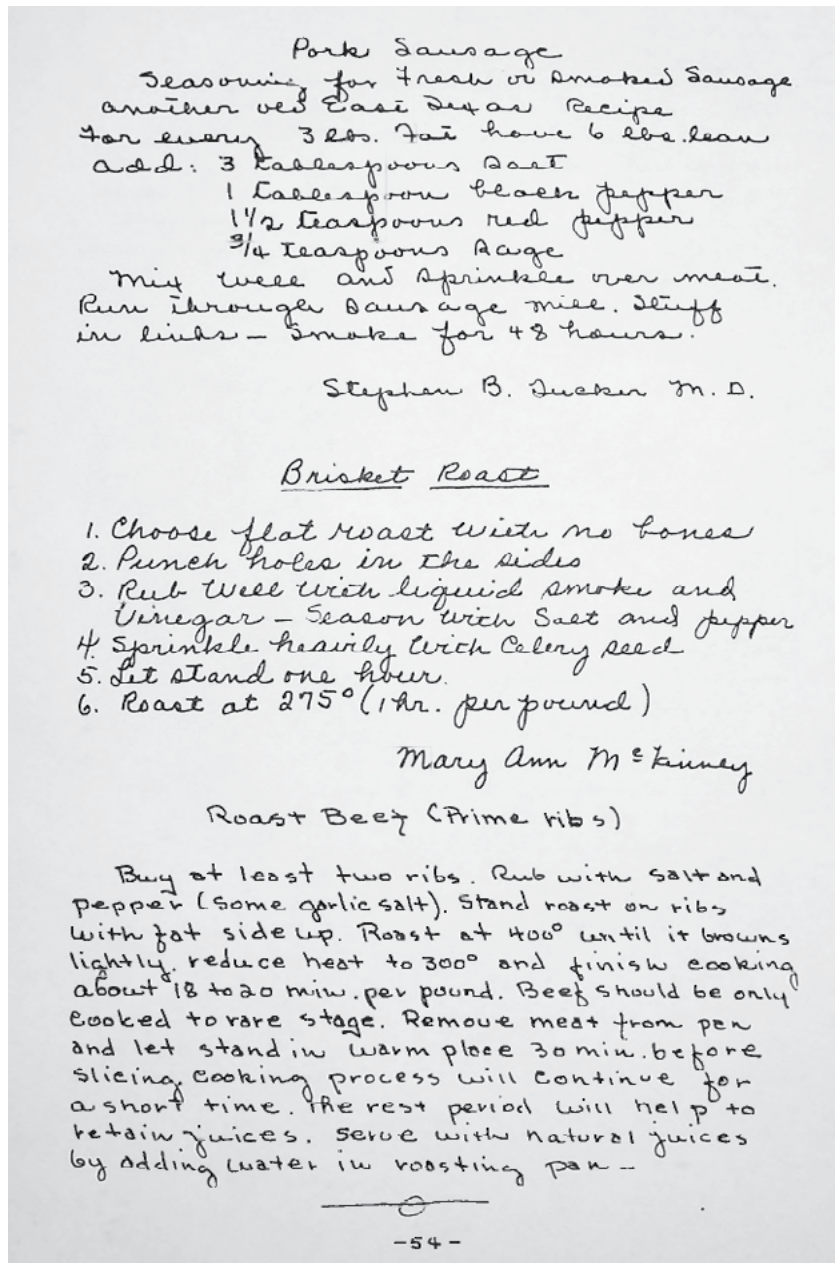 Pork Sausage
Seasoning for Fresh or Smoked Sausage
another old East Texas Recipe
For every 3 lbs. Fat have 6 lbs. lean
add: 3 tablespoons Salt
1 tablespoon black pepper
1 1/2 teaspoons red pepper
3/4 teaspoons Sage
Mix well and sprinkle over meat.
Run through sausage mill. Stuff
in links – Smoke for 48 hours.
Stephen B. Tucker M. D.
Brisket Roast
1. Choose flat roast with no bones
2. Punch holes in the sides
3. Rub Well with liquid smoke and
Vinegar – Season with Salt and pepper
4. Sprinkle heavily with Celery seed
5. Let stand one hour.
6. Roast at 275° (1 hr. per pound)
Mary Ann McKinney
Roast Beef (Prime ribs)
Buy at least two ribs. Rub with salt and
pepper (some garlic salt). Stand roast on ribs
with fat side up. Roast at 400° until it browns
lightly, reduce heat to 300° and finish cooking
about 18 to 20 min. per pound. Beef should be only
cooked to rare stage. Remove meat from pan
and let stand in warm place 30 min. before
slicing. Cooking process will continue for
a short time. The rest period will help to
retain juices. Serve with natural juices
by adding water in roasting pan –
-54-